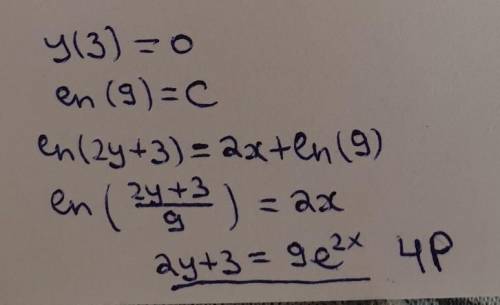 y(3) = 0
ln(9) = C
ln(2y+3) = 2x+ln(9)
ln((2y+3)/9) = 2x
2y+3 = 9e^{2x} 4P